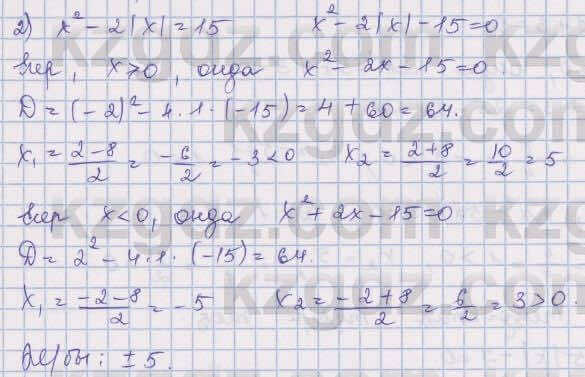 2) x² - 2|x| = 15    x² - 2|x| - 15 = 0
Егер, x ⩾ 0, онда x² - 2x - 15 = 0
D = (-2)² - 4·1·(-15) = 4 + 60 = 64.
x₁ = (2-8)/2 = -6/2 = -3 < 0    x₂ = (2+8)/2 = 10/2 = 5
Егер x < 0, онда x² + 2x - 15 = 0
D = 2² - 4·1·(-15) = 64.
x₁ = (-2-8)/2 = -5    x₂ = (-2+8)/2 = 6/2 = 3 > 0
Ж/бы: ±5.
kzgdz.com